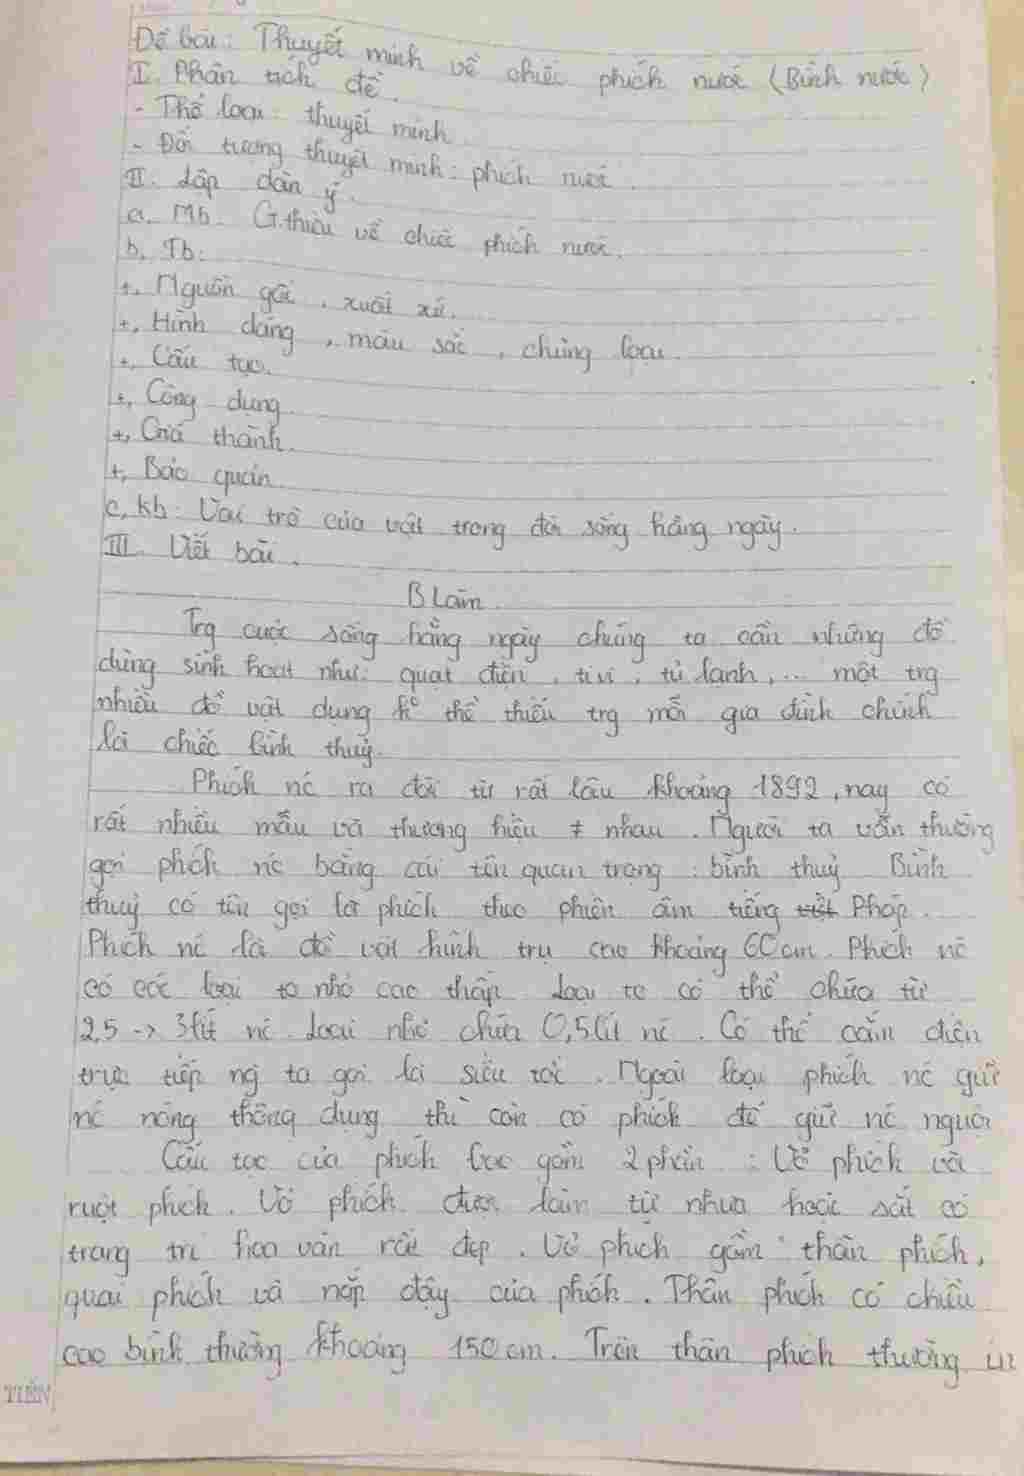 Đề bài: Thuyết minh về chiếc phích nước (Bình nước)
I. Phân tích đề.
- Thể loại: thuyết minh.
- Đối tượng thuyết minh: phích nước.
II. Lập dàn ý.
a. Mb. G.thiệu về chiếc phích nước.
b, Tb:
+, Nguồn gốc, xuất xứ.
+, Hình dáng, màu sắc, chủng loại.
+, Cấu tạo.
+, Công dụng.
+, Giá thành.
+, Bảo quản.
c, kb: Vai trò của vật trong đời sống hằng ngày.
III. Viết bài.
B Làm.
Trg cuộc sống hằng ngày chúng ta cần những đồ
dùng sinh hoạt như: quạt điện, tivi, tủ lạnh,... một trg
nhiều đồ vật dụng k° thể thiếu trg mỗi gia đình chính
là chiếc bình thuỷ.
Phích nc ra đời từ rất lâu khoảng 1892, nay có
rất nhiều mẫu và thương hiệu ≠ nhau. Người ta vẫn thường
gọi phích nc bằng cái tên quan trọng: bình thuỷ Bình
thuỷ có tên gọi là phích theo phiên âm tiếng việt Pháp.
Phích nc là đồ vật hình trụ cao khoảng 60cm. Phích nc
có các loại to nhỏ cao thấp. Loại to có thể chứa từ
2,5 -> 3lít nc. Loại nhỏ chứa 0,5lít nc. Có thể cắm điện
trực tiếp ng ta gọi là siêu tốc. Ngoài loại phích nc giữ
nc nóng thông dụng thì còn có phích để giữ nc nguội
Cấu tạo của phích bao gồm 2 phần: Vỏ phích và
ruột phích. Vỏ phích được làm từ nhựa hoặc sắt có
trang trí hoa văn rất đẹp. Vỏ phích gồm: thân phích,
quai phích và nắp đậy của phích. Thân phích có chiều
cao bình thường khoảng 150cm. Trên thân phích thường in
TIẾN